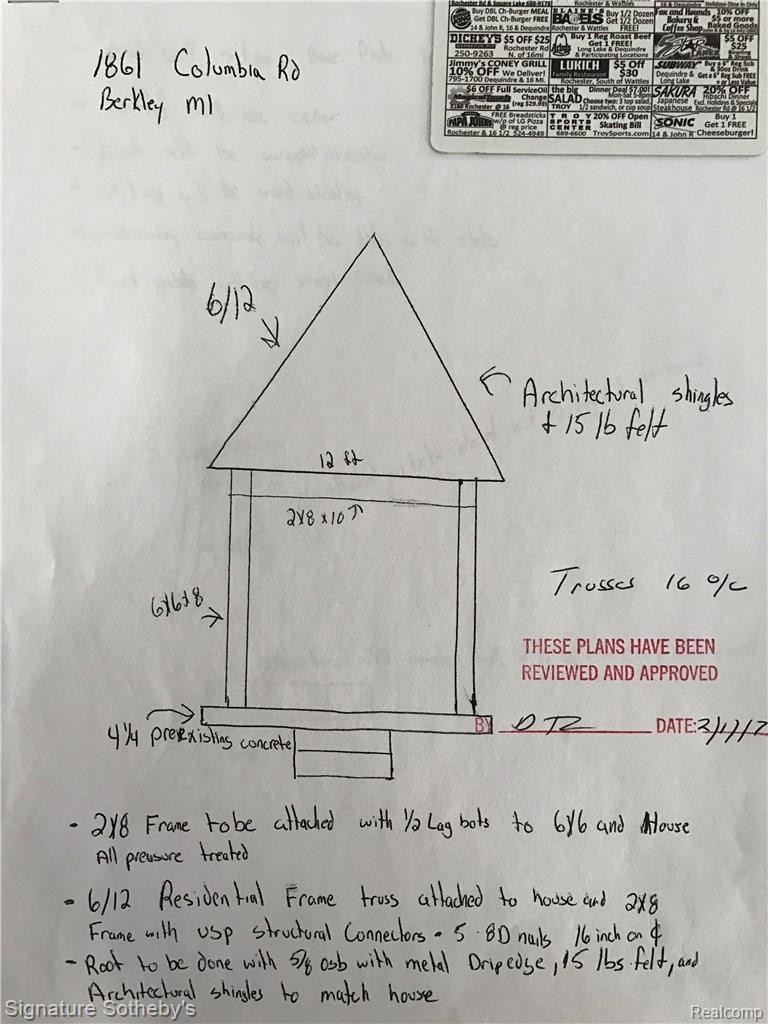 Rochester Rd & Square Lake 688-9178
Rochester & Wattles
Buy DBL Ch-Burger MEAL
Get DBL Ch-Burger FREE
14 & John R, 16 & Dequindre
BAGELS
Buy 1/2 Dozen
Get 1/2 Dozen
FREE!
Rochester & Wattles
Fox and Hounds
Bakery &
Coffee Shop
10% OFF
$5 or more
Baked Goods
DICKEY'S $5 OFF $25
250-9263
Rochester Rd
N. of 16mi
Arbys
Buy 1 Reg Roast Beef
Get 1 FREE!
Long Lake & Dequindre
& Participating Locations
STAR
LANES
$5 OFF
$25
Jimmy's CONEY GRILL
10% OFF We Deliver!
795-1700 Dequindre & 16 Mi.
Rochester, South of Wattles
LUKICH
Family Restaurant
$5 Off
$30
Rochester & Wattles
SUBWAY
Dequindre &
Long Lake
Buy a 6" Reg Sub
& 30oz Drink
Get a 6" Reg Sub FREE
$6 OFF Full Service Oil
Change
(reg $29.99)
the big
SALAD
TROY
Dinner Deal $7.00!
Mon-Sat 5-8pm
Choose two: 3 top salad,
1/2 sandwich, or cup soup
SAKURA 20% OFF
Japanese
Steakhouse
Hibachi Dinner
Excl. Holidays & Specials
PAPA JOHNS
FREE Breadsticks
w/p of LG Pizza
@ reg price
Rochester & 16 1/2 524-4949
TROY
SPORTS
CENTER
20% OFF Open
Skating Bill
689-6600 TroySports.com
SONIC
14 & John R
Buy 1
Get 1 FREE
Cheeseburger!
1861 Columbia Rd
Berkley MI
6/12
Architectural shingles
+ 15 lb felt
12 ft
2x8x10
6x6x8
Trusses 16 o/c
THESE PLANS HAVE BEEN
REVIEWED AND APPROVED
BY DTZ DATE:
4 1/4 preexisting concrete
- 2x8 Frame to be attached with 1/2 Lag bots to 6x6 and House
All pressure treated
- 6/12 Residential Frame truss attached to house and 2x8
Frame with USP structural Connectors - 5 - 8D nails 16 inch on ¢
- Root to be done with 5/8 osb with metal Dripedge, 15 lbs felt, and
Architectural shingles to match house
Signature Sotheby's
Realcomp